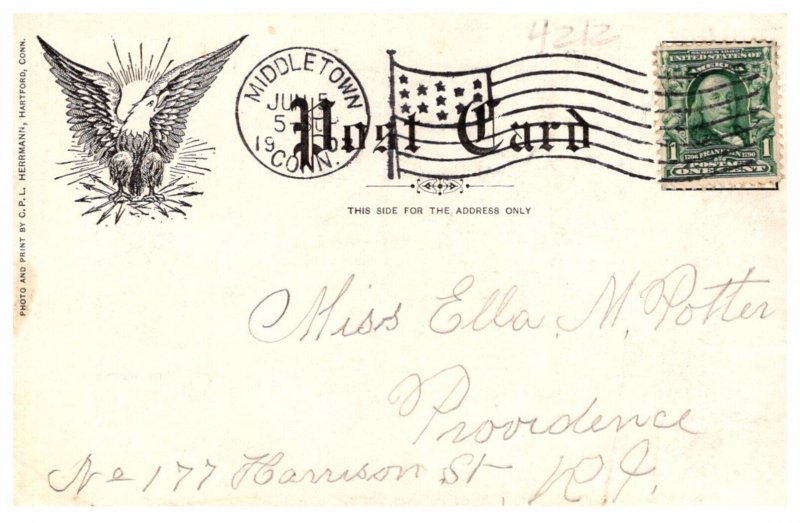 4212
PHOTO AND PRINT BY C.P.L. HERRMANN, HARTFORD, CONN.
MIDDLETOWN
JUN 5
5-
19
CONN.
Post Card
THIS SIDE FOR THE ADDRESS ONLY
SERIES 1902
UNITED STATES OF AMERICA
1 1706 FRANKLIN 1790 1
POSTAGE
ONE CENT
Miss Ella. M. Potter
Providence
No 177 Harrison St. R.I.